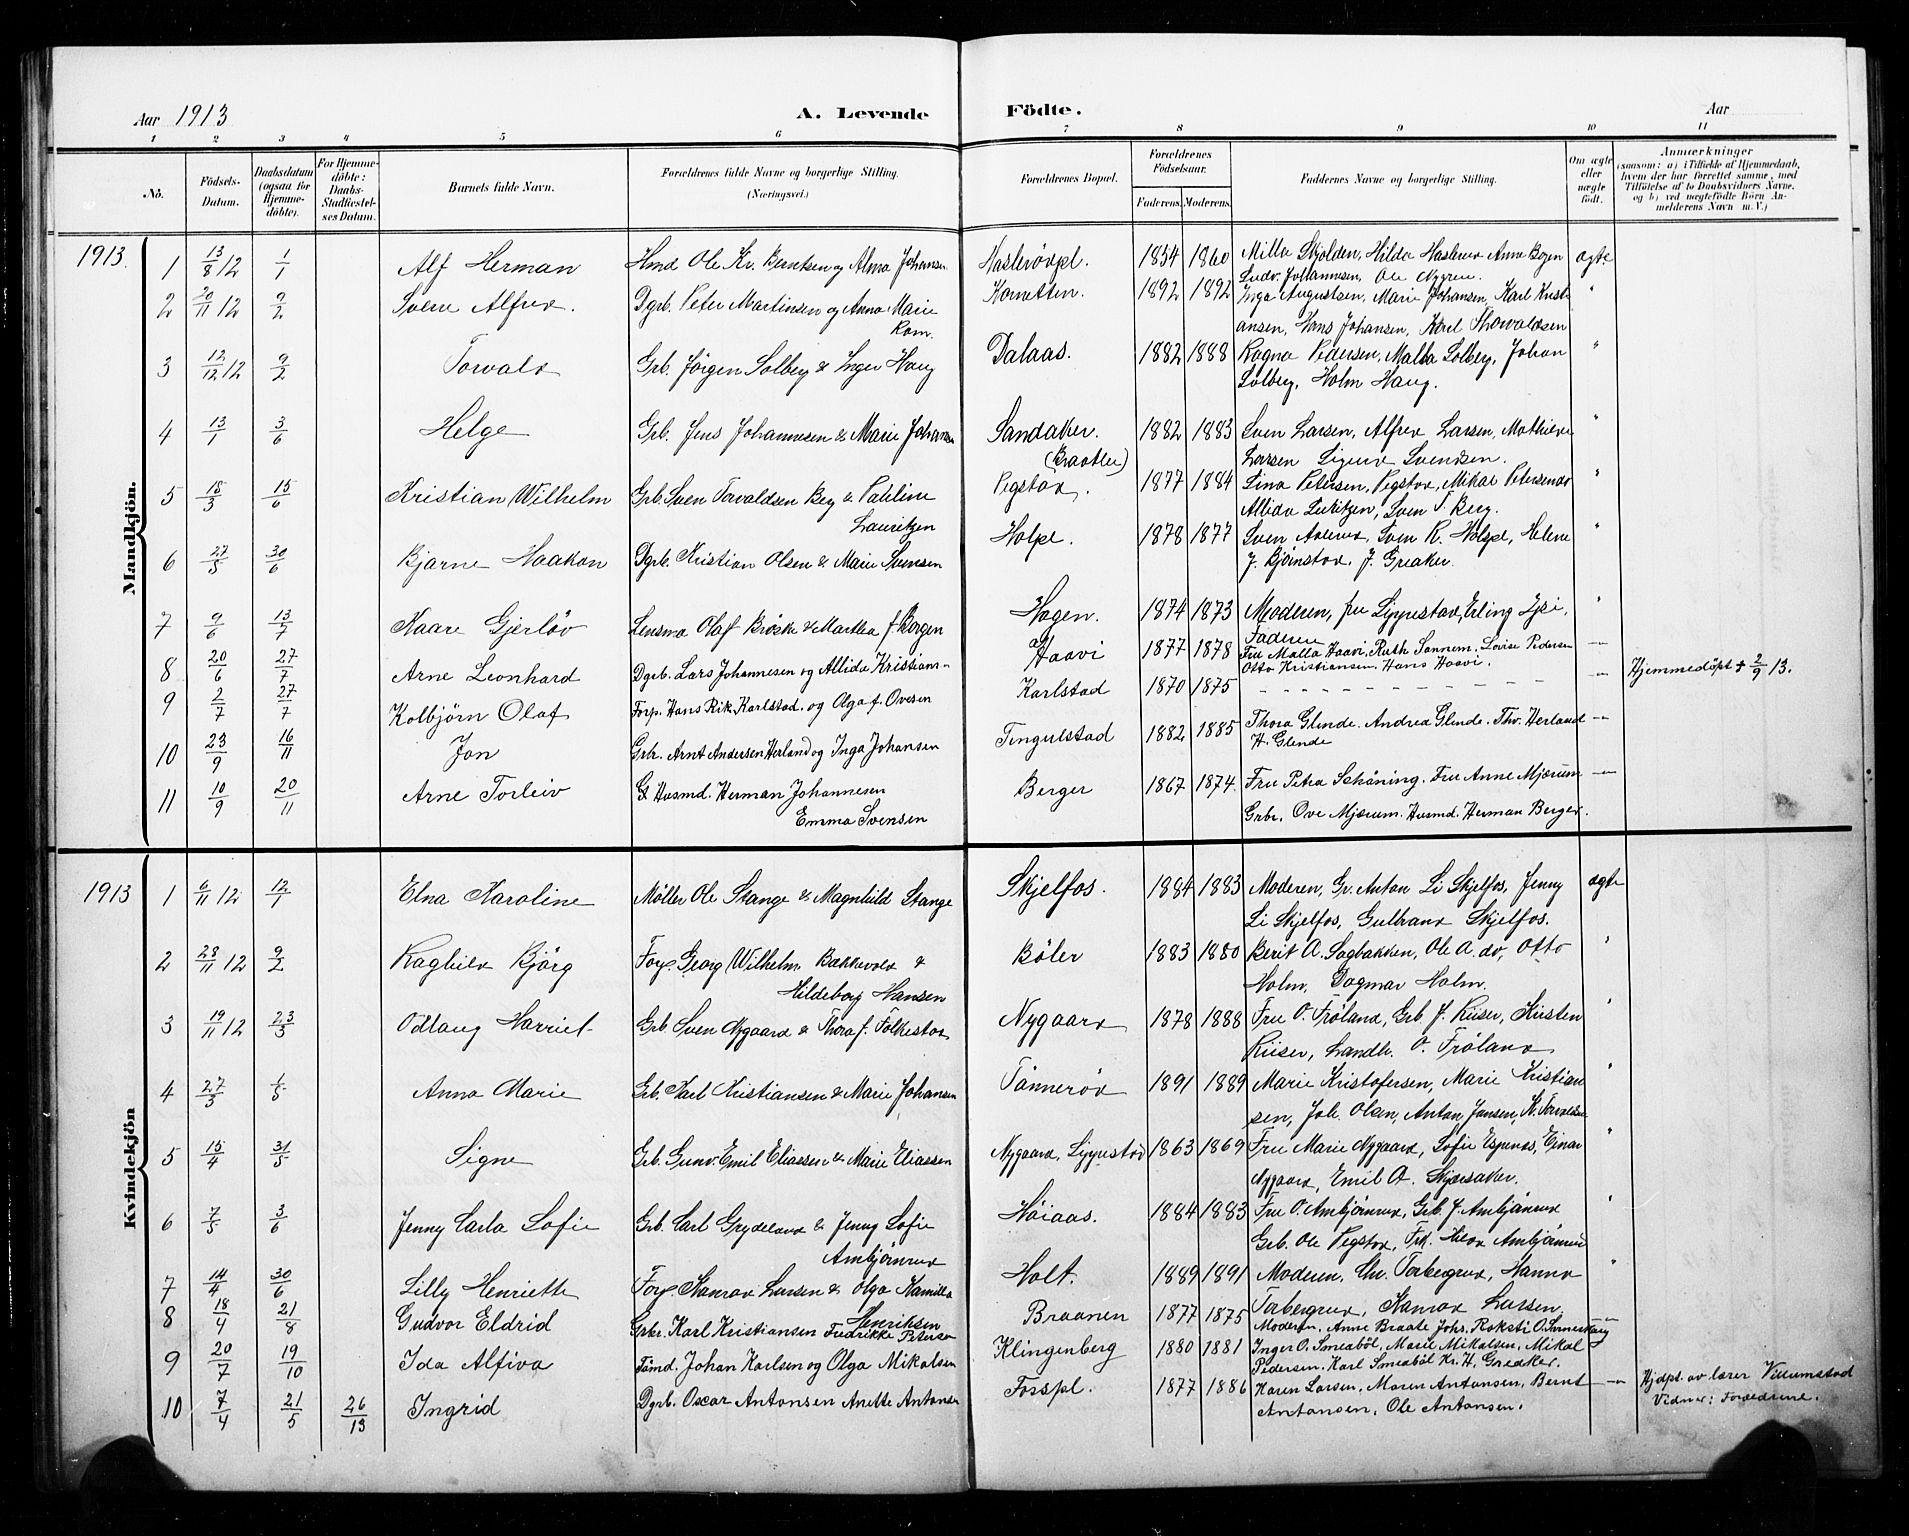 Aar 1913 A. Levende Födte. Aar
1 2 3 4 5 6 7 8 9 10 11
No. Födsels-Datum. Daabsdatum (ogsaa for Hjemme-döbte). For Hjemme-döbte: Daabs-Stadfæstel-ses Datum. Barnets fulde Navn. Forældrenes fulde Navne og borgerlige Stilling. (Næringsvei.) Forældrenes Bopæl. Forældrenes Födselsaar. Faderens. Moderens. Faddernes Navne og borgerlige Stilling. Om ægte eller uægte födt. Anmærkninger (saasom: a) i Tilfælde af Hjemmedaab, hvem der har forrettet samme, med Tilföielse af to Daabsvidners Navne, og b) ved uægtefödte Börn An-melderens Navn m. V.)
Mandkjön.
1913. 1 13/8 12 1/1 Alf Herman Hmd Ole Kr. Berntsen og Alma Johansen Haslerövpl. 1854 1860 Milla Skjolden, Hilda Haslerud Anne Bogen ægte
Ludv. Johannesen, Ole Nygren.
2 20/11 12 9/2 Svene Alfred. Dgrb. Peter Martinsen og Anna Marie Kornetten. 1892 1892 Inga Augustsen, Marie Johansen, Karl Kristi "
Rom. ansen, Hans Johansen, Karl Thorvaldsen
3 12/12 12 9/2 Torvald Grb. Jörgen Solberg & Inger Haug Dalaas. 1882 1888 Ragna Pedersen, Malla Solberg, Johan "
Solberg, Holm Haug.
4 13/1 3/6 Helge Grb. Jens Johannesen & Marie Johansen Sandaker. 1882 1883 Sven Larsen, Alfred Larsen, Mathilde "
(Braatlee) Larsen Sigurd Svendsen.
5 18/3 15/6 Kristian Wilhelm Grb Sven Torvaldsen Berg & Pauline Pegstad. 1877 1884 Lina Petersen, Pegstad, Mikal Petersen do "
Lauritzen Allida Luritzen, Sven T. Berg.
6 27/5 30/6 Bjarne Haakon Dgrb. Kristian Olsen & Marie Svensen Holpe. 1878 1877 Sven Aslerud, Sven K. Holpe, Helene "
J. Björnstad. J. Greaker.
7 9/6 13/7 Kaare Gjerlöv Lensmd Olaf Bröske & Martha f. Borgen Hagen. 1874 1873 Moderen, fru Lippestad, Erling Lysi, "
Faderen
8 20/6 27/7 Arne Leonhard Dgrb. Lars Johannesen og Allida Kristian- Haavi 1877 1878 Fru Malla Haavi, Ruth Sannem. Lovise Pedersen —
Otto Kristiansen. Hans Haavi.
9 2/7 27/7 Kolbjörn Olaf Forp. Hans Rik. Karlstad. og Olga f. Ovesen Karlstad 1870 1875 - - - - - - - - - - — Hjemmedöpt + 2/9 13.
10 23/9 16/11 Jon Grbr. Arnt Andersen Herland og Inga Johansen Tingulstad 1882 1885 Thora Glende. Andrea Glende. Thv. Herland —
H. Glende
11 10/9 20/11 Arne Torleiv G. Husmd. Herman Johannesen Berger 1867 1874. Fru Petra Schåning. Fru Anne Mjærum —
Emma Svensen Grbr. Ove Mjærum. Husmd. Herman Berger.
Kvindekjön
1913 1 6/11 12 12/1 Elna Karoline Möller Ole Stange & Magnhild Stange Skjelfos. 1884 1883 Moderen, Gr. Anton Li Skjelfos, Jenny ægte
Li Skjelfos, Gulbrand Skjelfos.
2 28/11 12 9/2 Raghild Björg Forp Georg Wilhelm Bakkevold & Böler 1883 1880 Berit A. Sagbakken, Ole A. do, Otto "
Hildeborg Hansen Holm, Dagmar Holm.
3 19/11 12 23/3 Odlaug Harriet Grb. Sven Nygaard & Thora f. Folkestad Nygaard 1878 1888 Fru O. Fröland, Grb. J. Kiiser, Kristen "
Kiiser, Landh. O. Fröland
4 27/3 1/5 Anna Marie Grb. Karl Kristiansen & Marie Johansen Tönneröd 1891 1889 Marie Kristofersen, Marie Kristian "
sen, Joh. Olsen, Anton Jansen, K. Torvaldsen
5 15/4 31/5 Signe Grb. Gunv. Emil Eliassen & Marie Eliassen Nygaard, Lippestad 1863 1869 Fru Marie Nygaard, Sofie Espenes, Einar "
Nygaard, Emil A. Skjærsaker.
6 7/5 3/6 Jenny Carla Sofie Grb. Carl Grydeland & Jenny Sofie Höiaas. 1884 1883 Fru O. Ambjörnrud, Grb. J. Ambjörnrud "
Ambjörnrud Grb. Ole Pegstad, Frk. Hilda Ambjörnrud
7 14/4 30/6 Lilly Henriette Forp Konrad Larsen & Olga Kamilla Holt. 1889 1891 Moderen, Chr. Torbergrud, Hanna "
Henriksen Torbergrud, Konrad Larsen.
8 18/4 21/8 Gudvor Eldrid Grbr. Karl Kristiansen Fredrikke Peterse Braanen 1877 1875 Moderen, Anne Braate Johs. Roksti O. Sannerhaug —
9 20/7 19/10 Ida Alfiva Tömd. Johan Karlsen og Olga Mikalsen Klingenberg 1880 1881 Inger O. Smeaböl, Marie Mikalsen, Mikal
Pedersen. Karl Smeaböl Kr. H. Greaker.
10 7/4 21/5 26/13 Ingrid Dgrb. Oscar Antonsen Anette Antonse Forspl. 1877 1886 Karen Larsen, Maren Antonsen, Bernt — Hjdpt. av lærer Villumstad
Antonsen, Ole Antonsen. Vidner: Forældrene.